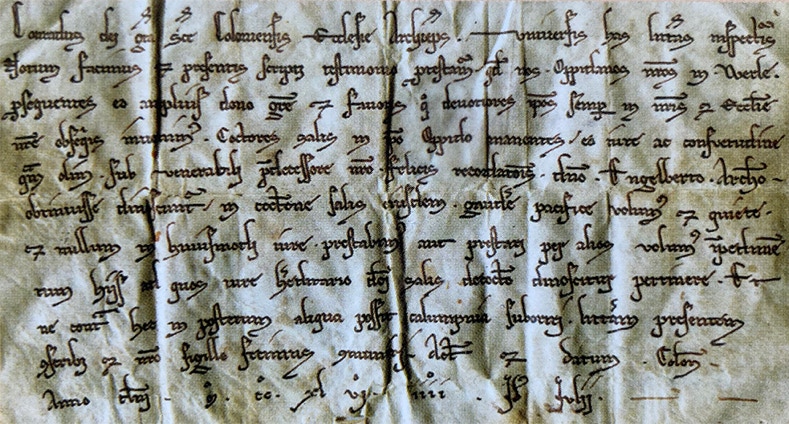 Conradus dei gra sce Coloniensis Ecclesie Archieps. universis has litras inspecturis
Notum facimus et presentis scripti testimonio protestam̄ qd nos Oppidanos nros in Werle.
ꝑsequentes eo amplius dono gre et favoris qo devotiores ipos semp in nris et Ecclie
nre obseqiis invenim⁹. Coctores salis in ipo Oppido manentes eo iure ac consuetudine
qm olim sub venerabili pdecessore nro felicis recordatois dno Engelberto Archiepo
obtinuisse dinoscunt in coctione salis eiusdem gaudere pacifice volum⁹ et quiete.
et nullum in huiusmodi iure prestabim⁹ aut prestari per alios volum⁹ ipedimen
tum hijs ad quos iure hereditario dci salis decoctio dinoscitur pertinere. Et
ne contra hec in posterum aliqua possit calumpnia suboriri litteram presentem
ꝯscribi et nro sigillo fecimus communiri. Act et datum Colon.
Anno dni. m. cc. xl vi. iiii. Id Julii.